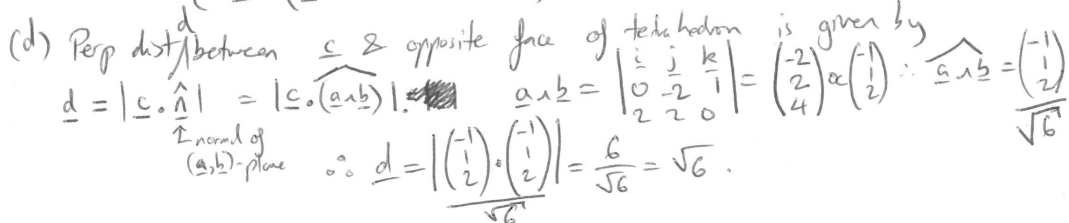 (d) Perp dist d between c & opposite face of tetrahedron is given by
d = |c . n̂| = |c . (a∧b)^|. a∧b = |i j k; 0 -2 1; 2 2 0| = (-2 2 4) ∝ (-1 1 2) ∴ (a∧b)^ = (-1 1 2)/√6
↑ normal of
(a,b)-plane
∴ d = |(-1 1 2) . (-1 1 2)|/√6 = 6/√6 = √6 .